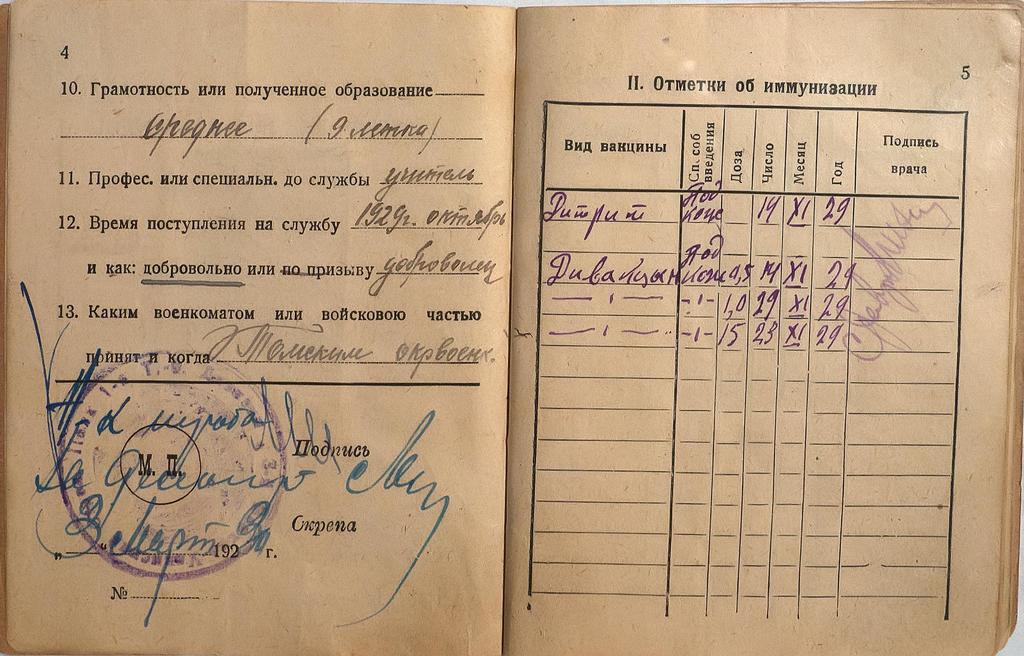 4
10. Грамотность или полученное образование
среднее (9 летка)
11. Професс. или специальн. до службы учитель
12. Время поступления на службу 1929г. октябрь
и как: добровольно или по призыву доброволец
13. Каким военкоматом или войсковою частью
принят и когда Томским окрвоенк.
Н-к штаба
М. П.
Подпись
Скрепа
3 март 192 30 г.
№
5
II. Отметки об иммунизации
Вид вакцины
Способ введения
Доза
Число
Месяц
Год
Подпись врача
Дитрит Под кож 14 XI 29
Дивакцин под кож 0,5 14 XI 29
— " — -"- 1,0 29 XI 29
— " — -"- 15 23 XI 29